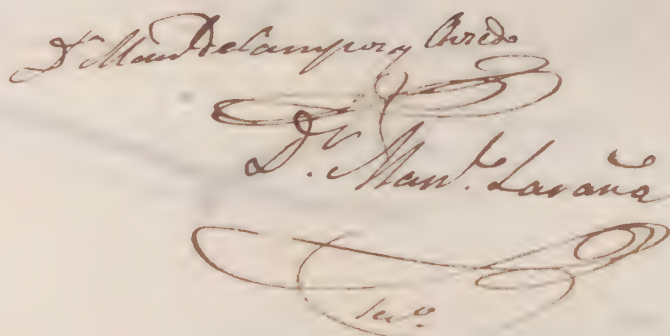 Dr. Manl. de Campos y Oviedo
Dr. Manl. Laraña
Srio.